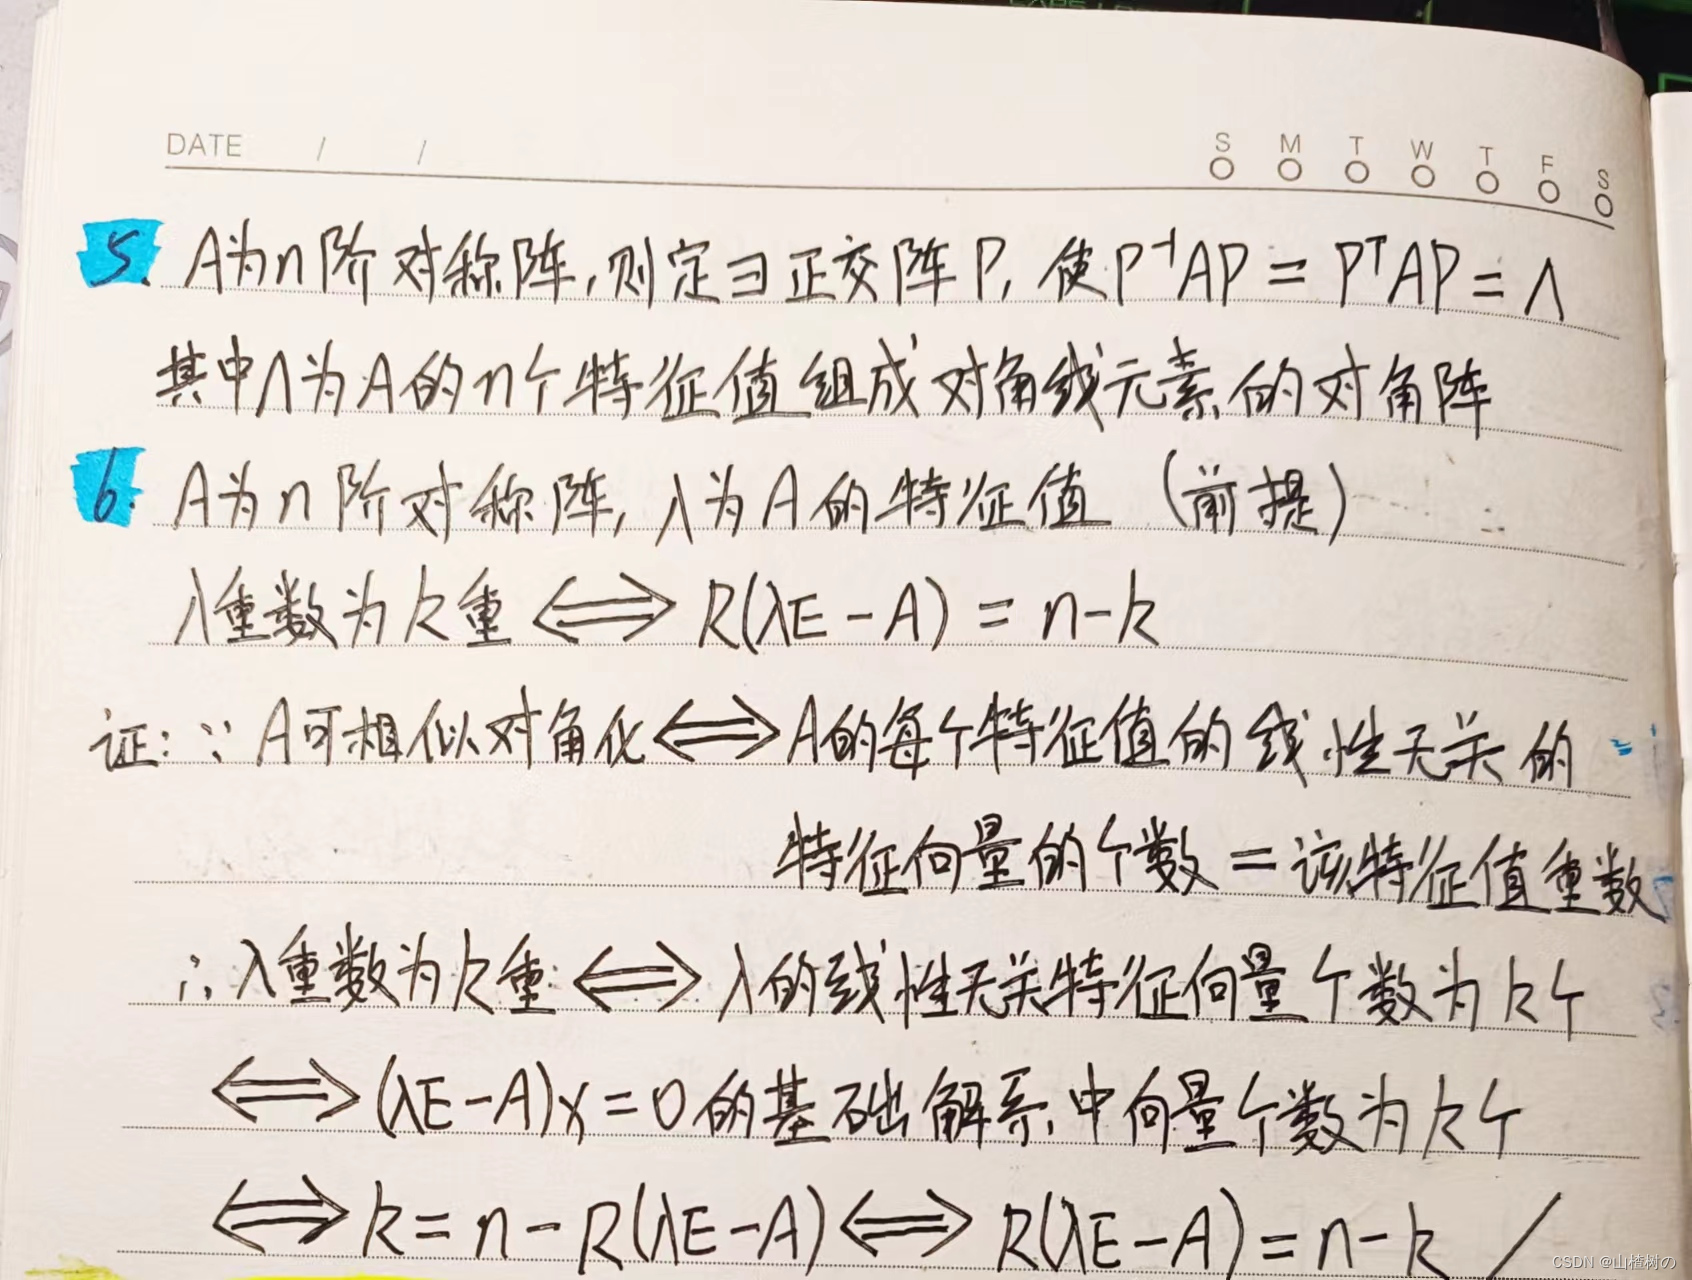 DATE / /
S M T W T F S
5. A为n阶对称阵,则定∃正交阵P,使P⁻¹AP=PᵀAP=Λ
其中Λ为A的n个特征值组成对角线元素的对角阵
6. A为n阶对称阵,λ为A的特征值(前提)
λ重数为k重⟺R(λE-A)=n-k
证:∵A可相似对角化⟺A的每个特征值的线性无关的
特征向量的个数=该特征值重数
∴λ重数为k重⟺λ的线性无关特征向量个数为k个
⟺(λE-A)x=0的基础解系中向量个数为k个
⟺k=n-R(λE-A)⟺R(λE-A)=n-k /
CSDN @山楂树の